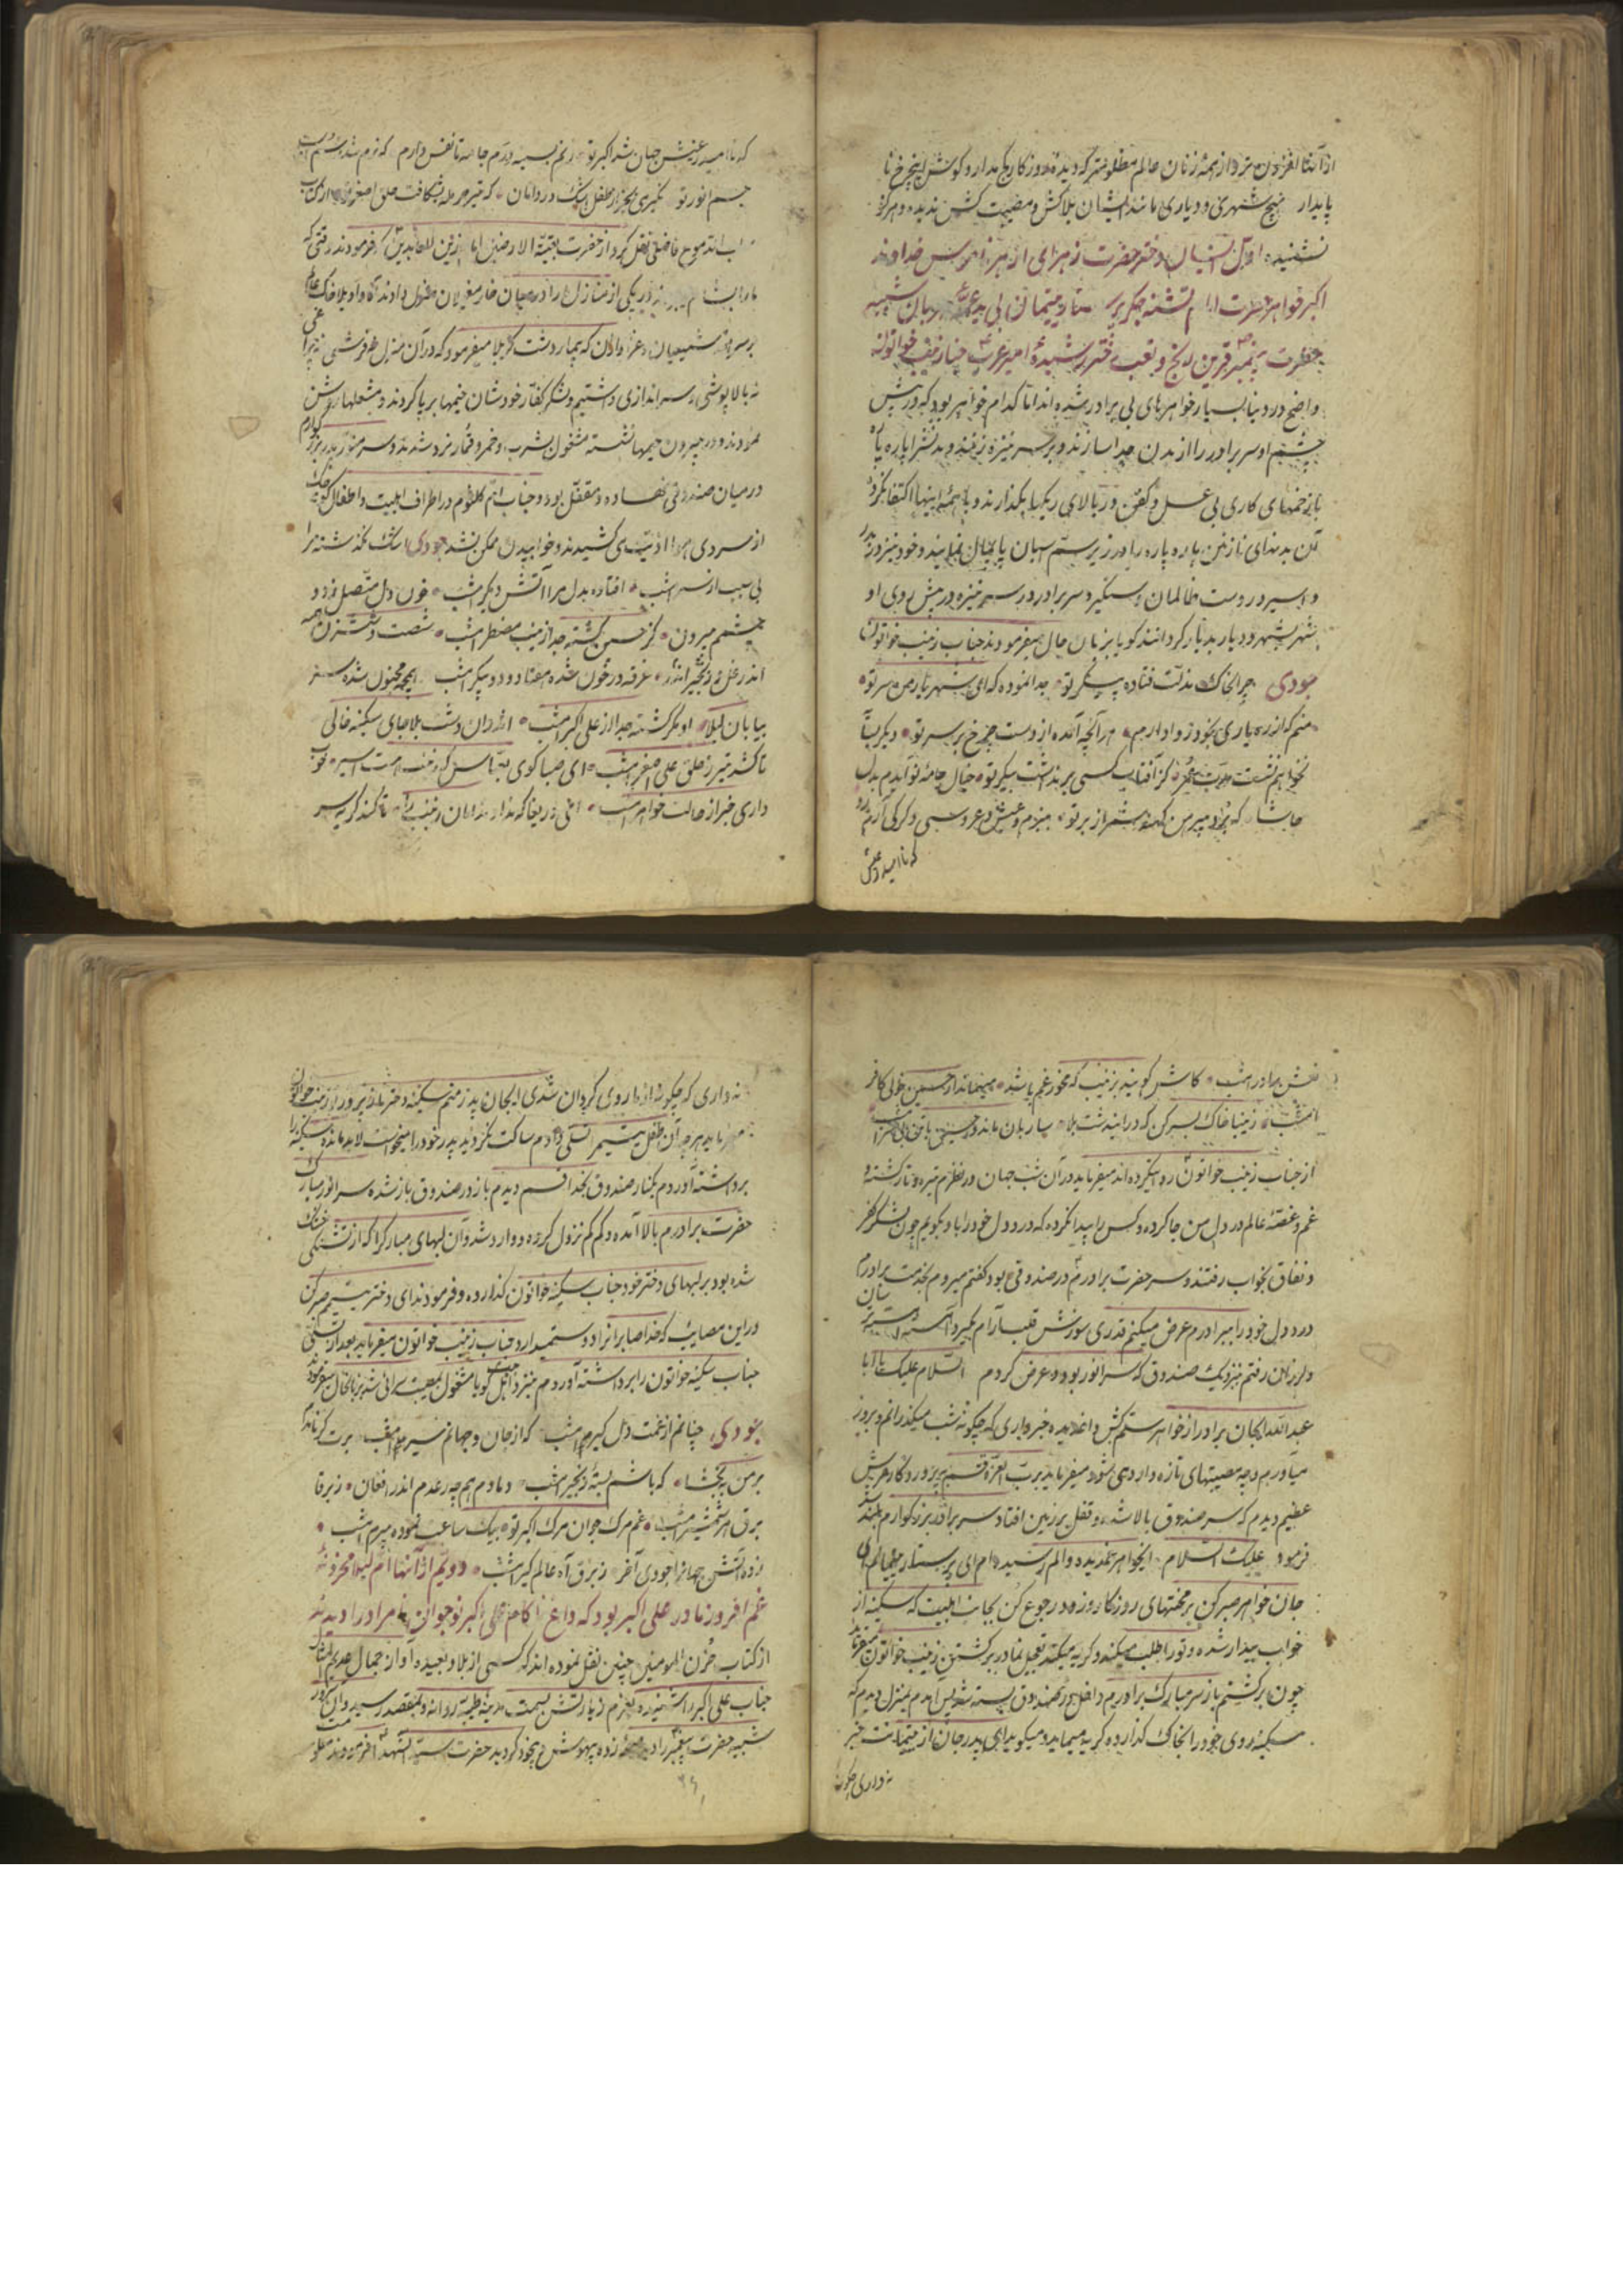 از همه زنان عالم مظلومتر که دیده روزگار کج مدار و گوش این چرخ نا
پایدار هیچ شهری و دیاری مانند ایشان بلاکش و مصیبت کش ندیده و هرگز
نشنیده اول ایشان دختر حضرت زهرای ازهر ناموس خداوند
اکبر خواهر حضرت امام تشنه جگر پرستار یتیمان بی شبیه
حضرت پیغمبر قرین رنج و تعب دختر رشیده امیر عرب جناب زینب خواتون
واضح در دنیا بسیار خواهرهای بی برادر شده‌اند اما کدام خواهر بود که در پیش
چشم او سر برادر را از بدن جدا سازند و بر سر نیزه زنند و بدنش را پاره پاره
با زخمهای کاری بی غسل و کفن در بالای ریگها بگذارند و با همه اینها اکتفا نکرده
آن بدنهای نازنین پاره پاره را در زیر سم اسبان پایمال نمایند و خود نیز در بدر
و اسیر در دست ظالمان و دستگیر و سر برادر در سر نیزه در پیش روی او
شهر بشهر و دیار بدیار گردانند گویا بزبان حال میفرمودند جناب زینب خواتون
جودی چرا بخاک مذلت فتاده پیکر تو جدا نموده که ای شهریار من سر تو
منم که از ره یاری بخود روا دارم هر آنچه آمده از دست چرخ بر سر تو دیگر بسا
نخواهم نشست مدت عمر کز آفتاب کسی برنداشت پیکر تو خیال جامه نو آیدم بدل
حاشا که بود پیرهن کهنه شمر از بر تو ببزم و عیش و عروسی دگر کی آرم رو
که ناامید ز عیش
که ناامید ز عیش جهان شد اکبر تو زنم بسینه درم جامه تا نفس دارم که نرم شد ز سم اسب
جسم انور تو نگیری بجز از طفل اشک در دامان که تیر حرمله بشکافت حلق اصغر تو از کتاب
فاضلی نقل کرد از حضرت بقیة الارضین امام زین العابدین که فرمودند وقتی که
ما را بشام در یکی از منازل ما را در میان خار مغیلان منزل دادند آه واویلا خاک عالم
بر سر شیعیان و عزاداران که بیمار دشت کربلا میفرمود که در آن منزل نه فرشی نه چراغی
نه بالاپوشی نه سراندازی داشتیم و لشکر کفار خودشان خیمها برپا کردند و مشعلها روشن
نمودند و در بیرون خیمها نشسته مشغول بشرب و خمر و قمار و نرد شدند و سر منور پدر بزرگوارم
در میان صندوقی نهاده و مقفل بود و جناب ام کلثوم در اطراف اهلبیت و اطفال کوچک
از سردی هوا اذیت می کشیدند و خوابیدن ممکن نشد جودی اشک نگذشته مرا
بی سبب از سر امشب افتاده بدل مرا آتش دیگر امشب خون دل متصل رود و
چشمم بیرون کز حسین گشته جدا زینب مضطر امشب شصت و شش زن همه
اندر غل و زنجیر اندر غرقه در خون شده هفتاد و دو پیکر امشب همچو مجنون شده سر
بیابان لیلا او مگر گشته جدا از علی اکبر امشب اندر آن دشت بلا جای سکینه خالی
تا کشد تیر ز حلق علی اصغر امشب ای صبا گوی بعباس که زینب است اسیر خوب
داری خبر از حالت خواهر امشب ای دریغا که ندارد امان زینب تا کند گریه بسر
نعش برادر امشب کاش گویند بزینب که مخور غم باشد میهماندار حسین خولی کافر
امشب زینبا خاک بسر کن که در این دشت بلا ساربان ماند و حسین با تن بی سر امشب
از جناب زینب خواتون روایت کرده‌اند میفرماید در آن شب جهان در نظرم تیره و تار گشته و
غم و غصه عالم در دل من جا کرده و کس را پیدا نکرده که درد دل خود را با او بگویم چون لشکر کفر
و نفاق بخواب رفتند و سر حضرت برادرم در صندوقی بود گفتم میروم بخدمت برادرم
درد دل خود را ببرادرم عرض میکنم قدری سوزش قلب آرام بگیرد آهسته آهسته ترسان
و لرزان رفتم بنزدیک صندوق که سر انور بود و عرض کردم السلام علیک یا ابا
عبدالله ایجان برادر از خواهر ستمکش داغدیده خبر داری که چگونه شب میگذرانم و بروز
میآورم و چه مصیبتهای تازه وارد می شود میفرماید برب العزة قسم بپروردگار عرش
عظیم دیدم که سر صندوق بالا شد و قفل بزمین افتاد سر برادر بزرگوارم بلند شد
فرمود علیک السلام ایخواهر غمدیده و الم رسیده‌ام ای پرستار یتیمانم ای
جان خواهر صبر کن بر محنتهای روزگار و زود رجوع کن بجانب اهلبیت که سکینه از
خواب بیدار شده و تو را طلب میکند و گریه میکند تعجیل نما در برگشتن زینب خواتون میفرماید
چون برگشتم باز سر مبارک برادرم داخل در صندوق بسته شد پس آمدم بمنزل دیدم که
سکینه روی خود را بخاک گذارده گریه مینماید و میگوید ای پدر جان از یتیمانت خبر
نداری چگونه
نداری که چگونه از ما روی گردان شدی ایجان پدر منم سکینه دختر ناز پرور تو زینب خواتون
میفرماید هر چه آن طفل یتیم را تسلی دادم ساکت نگردید پدر خود را میخواست لابد مانده سکینه را
برداشته آوردم بکنار صندوق بخدا قسم دیدم باز در صندوق باز شده سر انور مبارک
حضرت برادرم بالا آمده و کم کم نزول کرده و وارد شد و آن لبهای مبارک را که از تشنگی خشک
شده بود بر لبهای دختر خود جناب سکینه خواتون گذارده و فرمودند ای دختر یتیمم صبر کن
در این مصایب که خدا صابرانرا دوست میدارد جناب زینب خواتون میفرماید بعد از تسلی
جناب سکینه خواتون را برداشته آوردم بنزد اهل بیت گویا مشغول بمصیبت سرائی شد بزبانحال میفرمود
جودی چنانم از غمت دل گیرم امشب که از جان و جهانم سیرم امشب برت گریانم
بر من ببخشا که باشم بسته زنجیر امشب دمادم همچو رعدم اندر افغان ز برق
برق شمشیر امشب غم مرگ جوان مرگ اکبر تو بیک ساعت نموده پیرم امشب
زده آتش جهانرا جودی آخر ز برق آه عالم گیر امشب دویم از آنها ام لیلا محزونه
غم افروز مادر علی اکبر بود که داغ ناکام علی اکبر نوجوان نامراد را دیده
از کتاب حزن المومنین چنین نقل نموده‌اند که کسی از بلاد بعیده آوازه جمال عدیم المثال
جناب علی اکبر را شنیده بعزم زیارتش بسمت مدینه طیبه روانه و بمقصد رسید و آن
شبیه حضرت پیغمبر را دید نعره زده بیهوش و بیخود گردید حضرت سید الشهدا فرمودند
۲۶۱